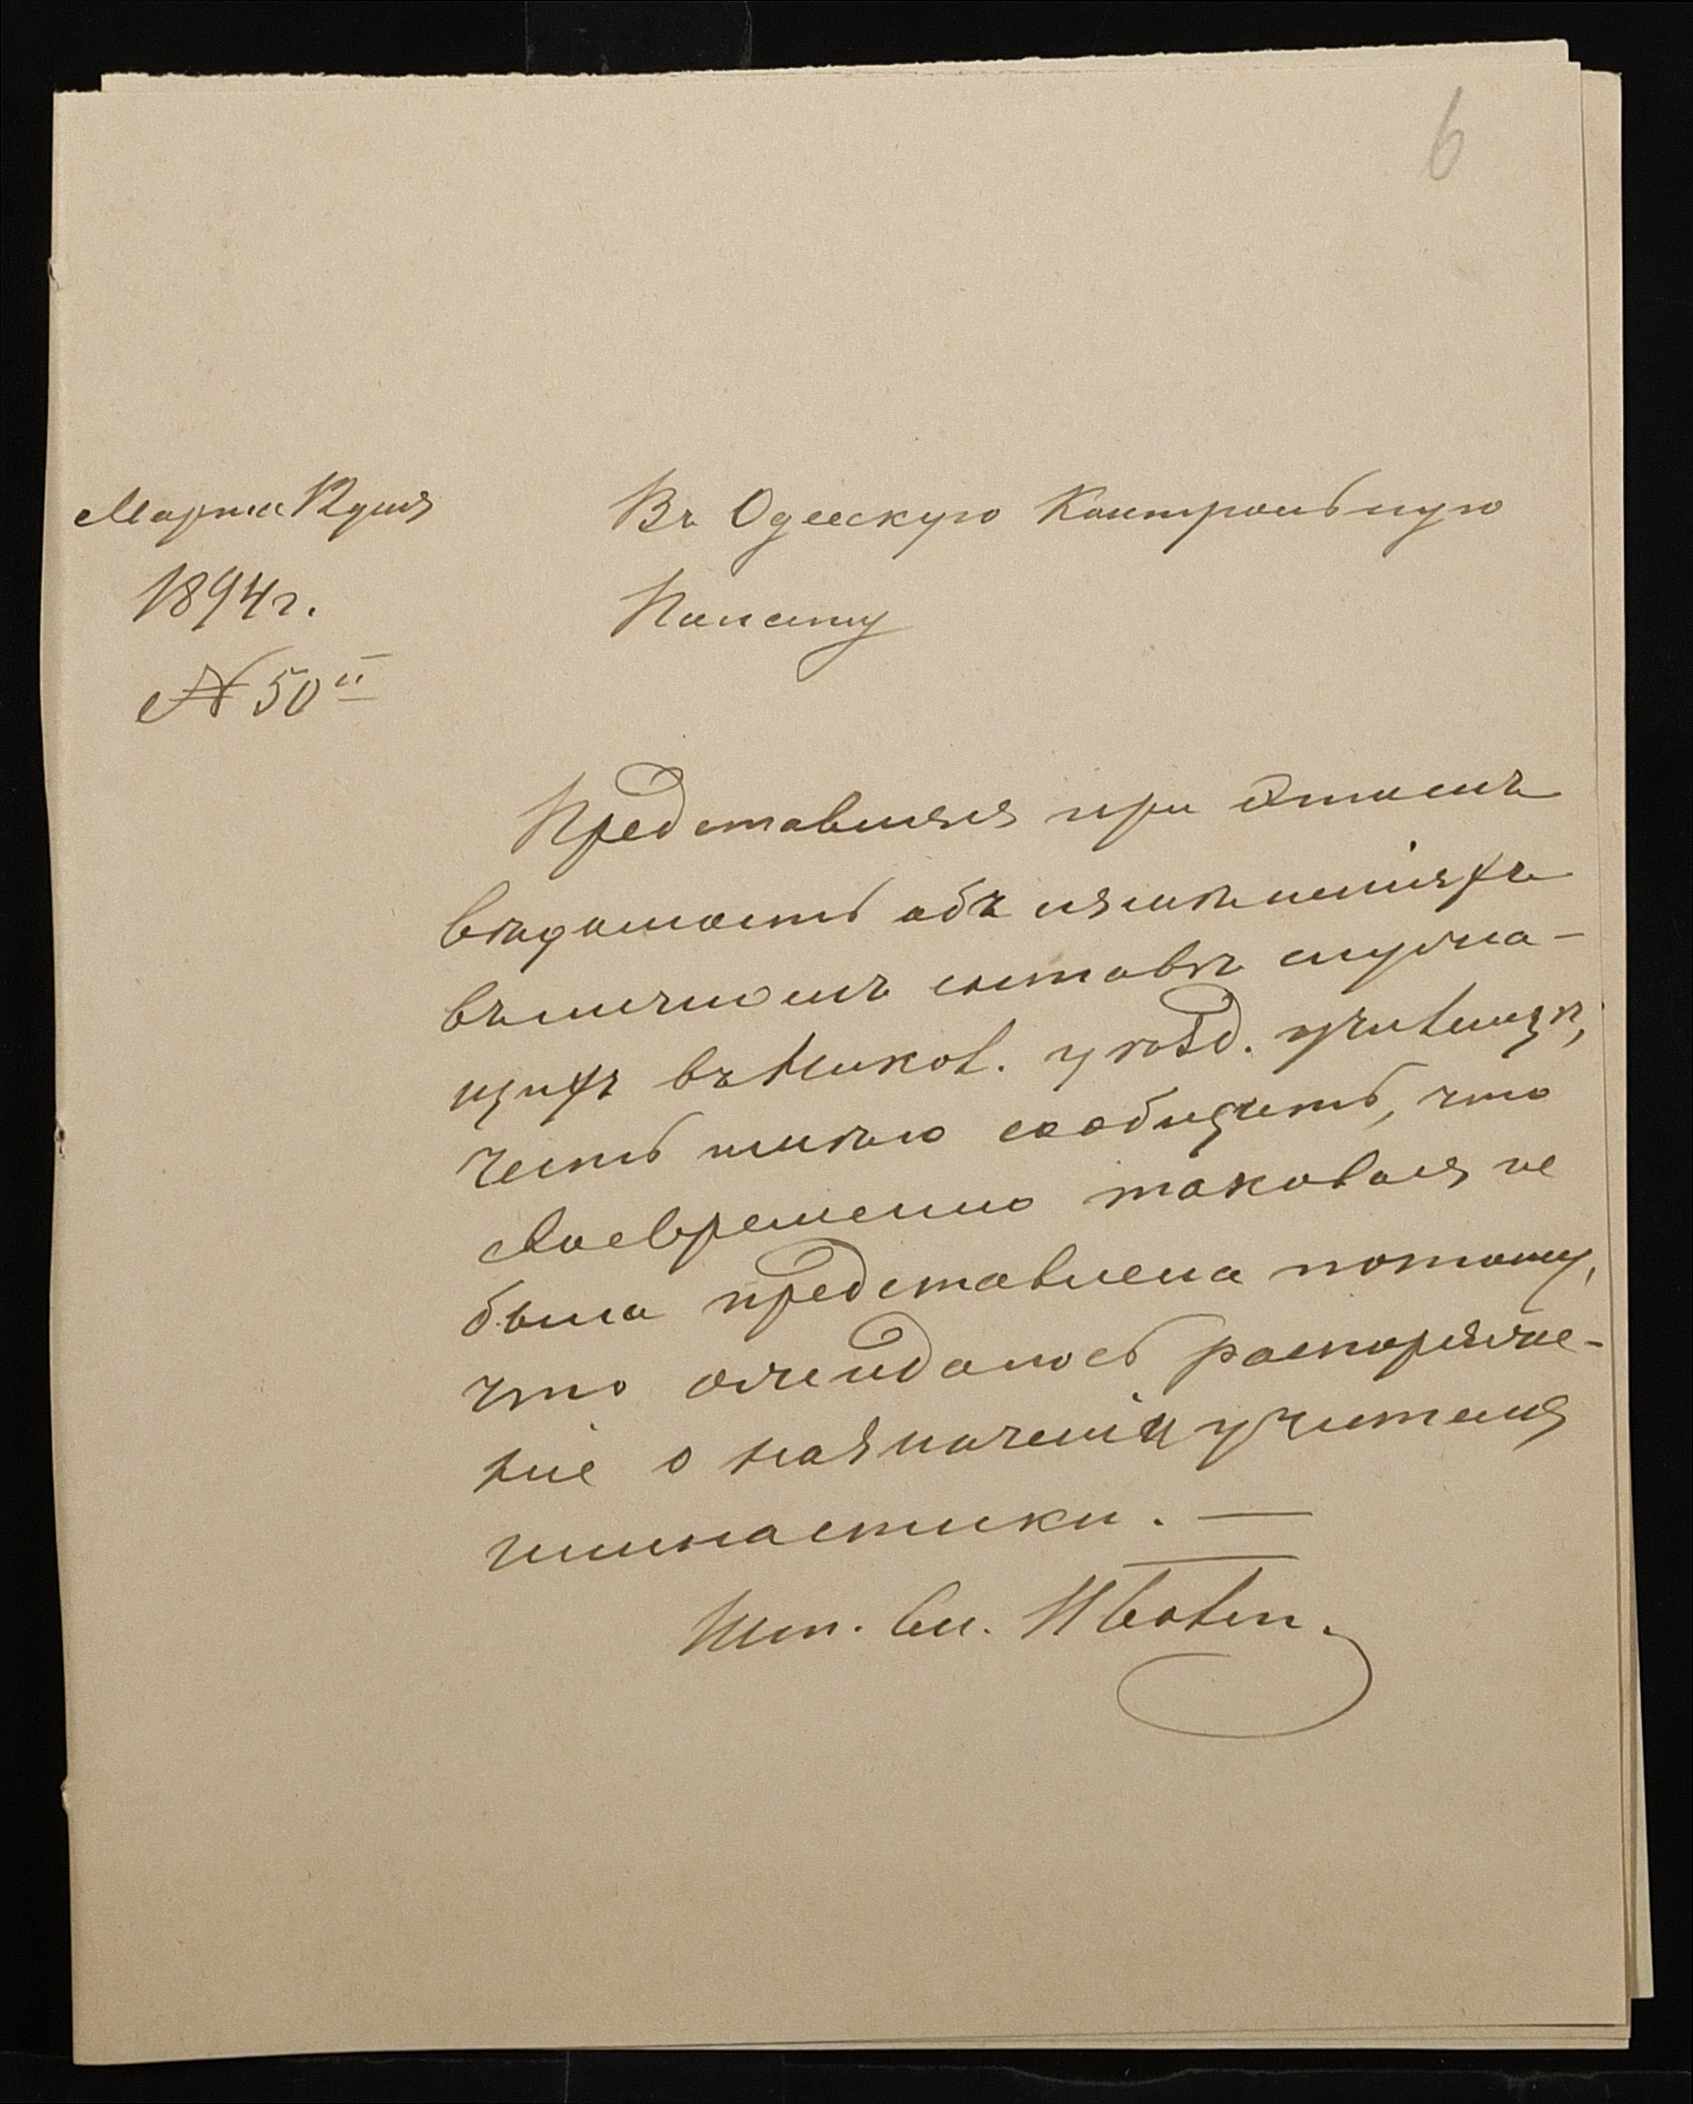 6
Марта 12 дня
1894 г.
№ 50
Въ Одесскую Контрольную
Палату
Представляя при этомъ
вѣдомость объ измѣненіяхъ
въ личномъ составѣ служа-
щихъ въ Никол. уѣзд. училищѣ,
честь имѣю сообщить, что
своевременно таковая не
была представлена потому,
что ожидалось распоряже-
ніе о назначеніи учителя
гимнастики. —
Шт. см.